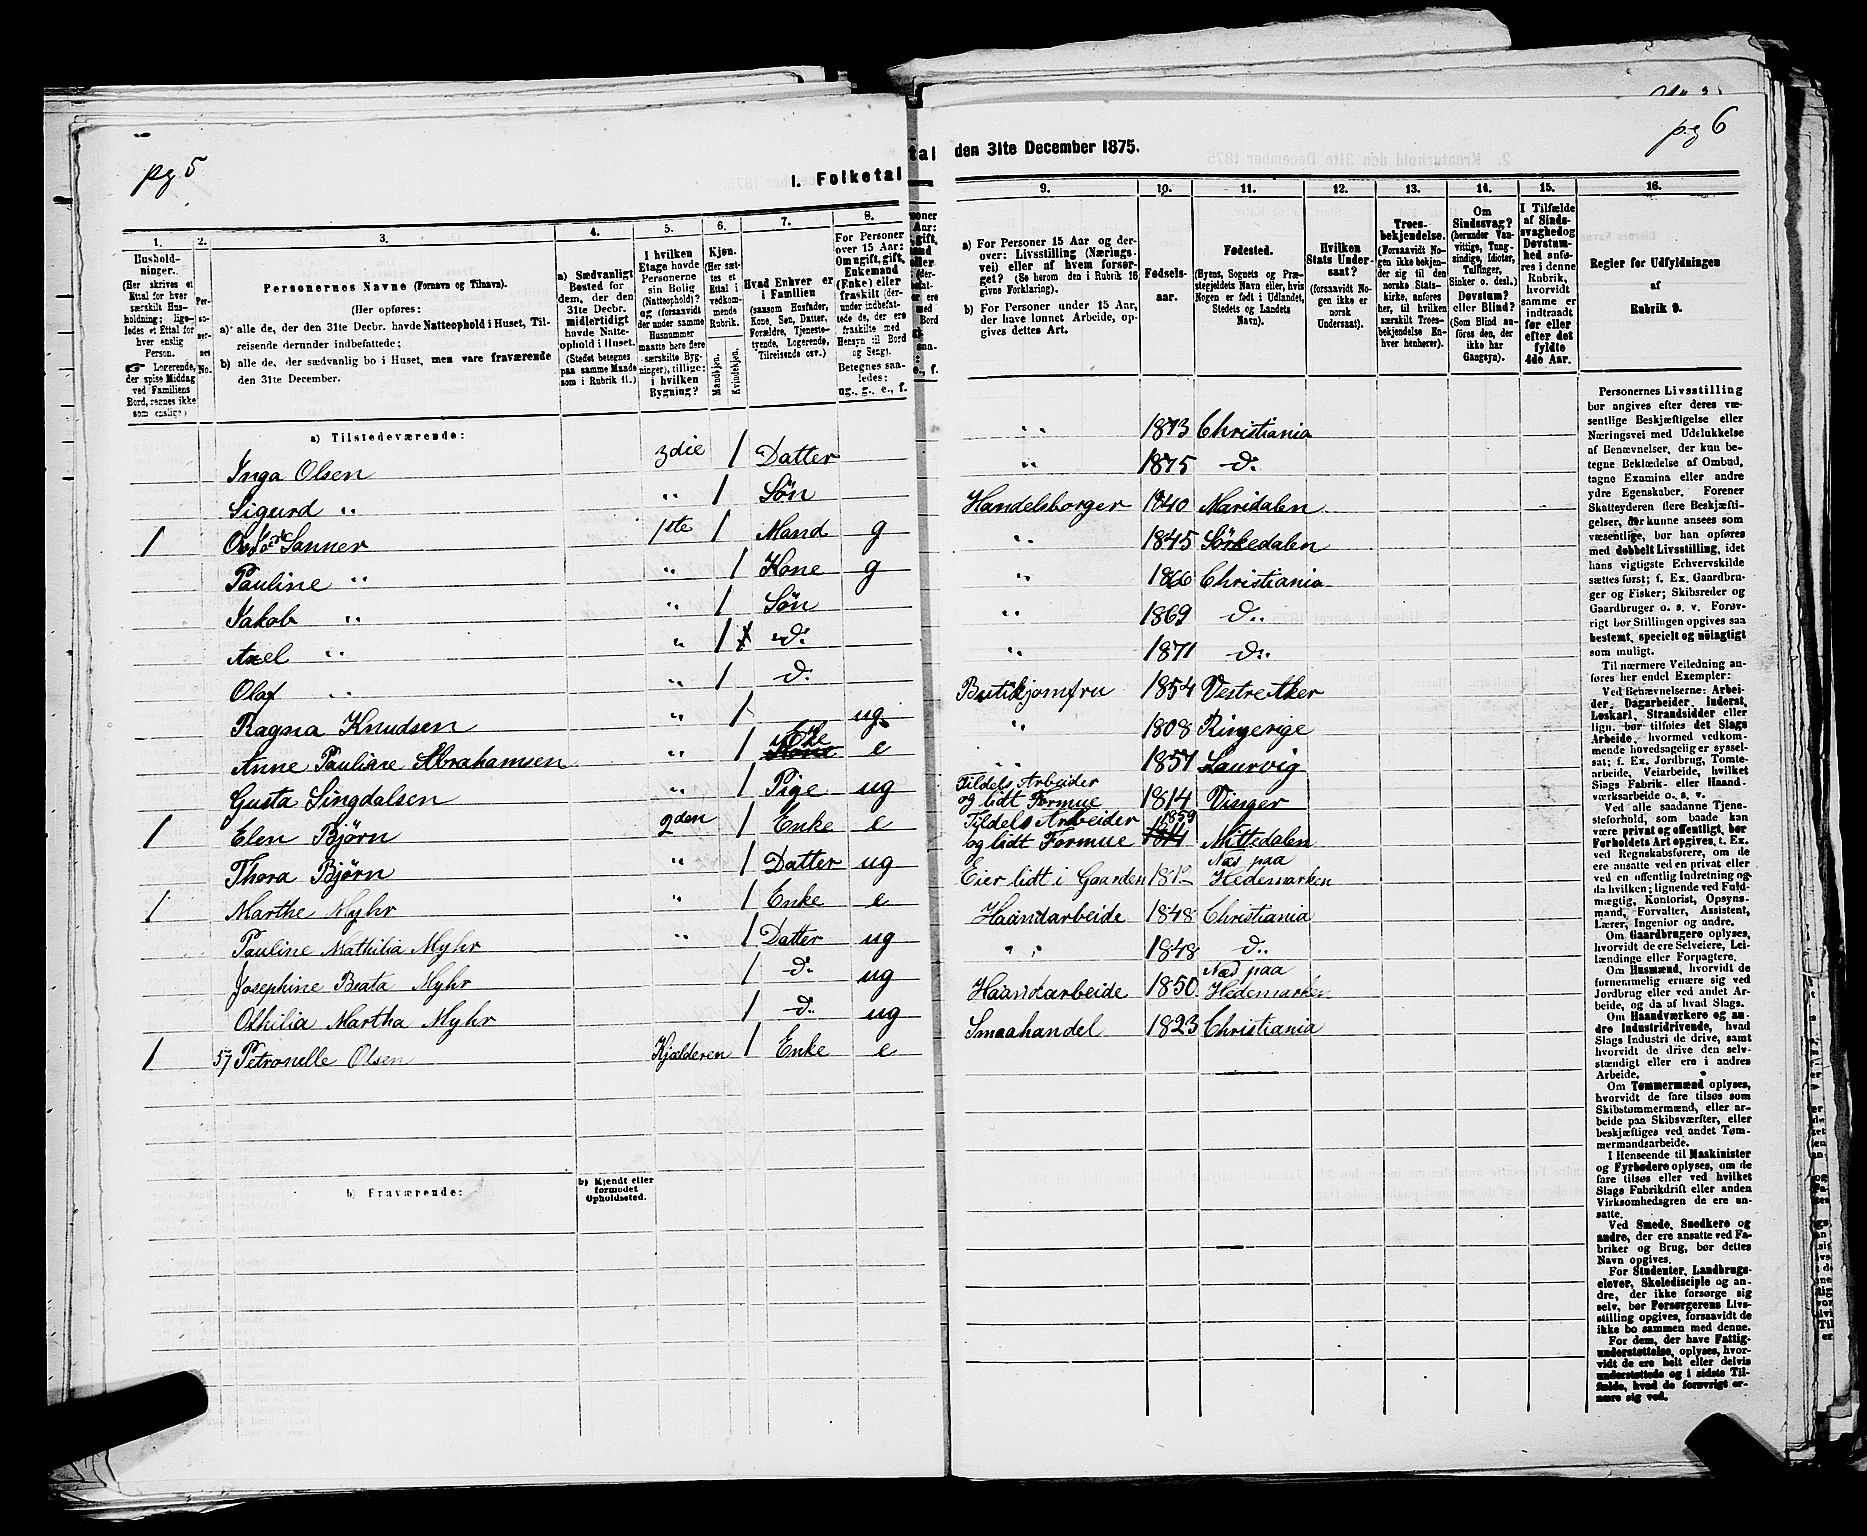 pg 5
pg 6
1. Folketal
tal
den 31te December 1875.
1. 2. 3. 4. 5. 6. 7. 8.
9. 10. 11. 12. 13. 14. 15. 16.
Husholdninger.
(Her skrives et
Ettal for hver
særskilt Husholdning;
ligeledes et Ettal for
hver enslig
Person.
Logerende,
der spise Middag
ved Familiens
Bord, regnes ikke
som enslige)
Personernes No.
Personernes Navne (Fornavn og Tilnavn).
(Her opføres:
a) alle de, der den 31te Decbr. havde Natteophold i Huset, Tilreisende derunder indbefattede;
b) alle de, der sædvanlig bo i Huset, men vare fraværende
den 31te December.
a) Sædvanligt
Bosted for
dem, der den
31te Decbr.
midlertidigt
havde Natteophold i Huset.
(Stedet betegnes
paa samme Maade
som i Rubrik 11.)
I hvilken
Etage havde
Personerne
sin Bolig
(Natteophold)?
og (forsaavidt
der under samme
Husnummer
maatte høre flere
særskilte Bygninger), tillige:
i hvilken
Bygning?
Kjøn.
(Her sættes et
Ettal i
vedkommende
Rubrik.
Mandkjøn.
Kvindekjøn.
Hvad Enhver er
i Familien
(saasom Husfader,
Kone, Søn, Datter,
Forældre, Tjenestetyende, Logerende,
Tilreisende osv.)
For Personer
over 15 Aar:
Om ugift, gift,
Enkemand
(Enke) eller
fraskilt (derunder indbefattede, de, der ere
fraskilte med
Hensyn til Bord
og Seng).
Betegnes saaledes:
ug., g., e., f.
a) For Personer 15 Aar og derover: Livsstilling (Næringsvei) eller af hvem forsørget? (Se herom den i Rubrik 16
givne Forklaring).
b) For Personer under 15 Aar,
der have lønnet Arbeide, opgives dettes Art.
Fødselsaar.
Fødested.
(Byens, Sognets og Præstegjeldets Navn eller, hvis
Nogen er født i Udlandet,
Stedets og Landets
Navn).
Hvilken
Stats Undersaat?
(forsaavidt Nogen ikke er
norsk
Undersaat).
Troesbekjendelse.
(Forsaavidt Nogen ikke bekjender sig til den
norske Statskirke, anføres
her, til hvilken
særskilt Troesbekjendelse Enhver henhører).
Om
Sindssvag?
(herunder Vanvittige, Tungsindige, Idioter,
Tulfinger,
Sinker o. desl.)
Døvstum?
eller Blind?
(Som Blind anføres den, der
ikke har
Gangsyn).
I Tilfælde
af Sindssvaghed og
Døvstumhed anføres i denne
Rubrik,
hvorvidt
samme er
indtraadt
før eller
efter det
fyldte
4de Aar.
Regler for Udfyldningen
af
Rubrik 9.
a) Tilstedeværende:
Inga Olsen 3die 1 Datter " 1873 Christiania
Sigurd " " 1 Søn " 1875 do.
1 Sanner 1ste 1 Mand g Handelsborger 1840 Maridalen
Pauline " " 1 Kone g " 1845 Sørkedalen
Jakob " " 1 Søn " 1866 Christiania
Axel " " 1 do. " 1869 do.
Olaf " " 1 do. " 1871 do.
Ragna Knudsen " 1 ug. Butikjomfru 1854 Vestre Aker
Anne Pauline Abrahamsen " 1 Enke e " 1808 Ringerige
Gusta Singdalsen " 1 Pige ug " 1857 Laurvig
1 Elen Bjørn 2den 1 Enke e Tildels Arbeider og lidt Formue 1814 Vinger
Thora Bjørn " 1 Datter ug Tildels Arbeider og lidt Formue 1859 Nittedalen
1 Marthe Myhr " 1 Enke e Eier lidt i Gaarden Næs paa Hedemarken
Pauline Mathilia Myhr " 1 Datter ug Haandarbeide 1848 Christiania
Josephine Beata Myhr 1 do. ug " 1848 do.
Othilia Martha Myhr 1 do. ug Haandarbeide 1850 Næs paa Hedemarken
1 57 Petronelle Olsen Kjælderen 1 Enke e Smaahandel 1823 Christiania
b) Fraværende:
b) Kjendt eller
formodet
Opholdssted.
Personernes Livsstilling
bør angives efter deres væsentlige Beskjæftigelse eller
Næringsvei med Udelukkelse
af Benævnelser, der kun betegne Beklædelse af Ombud,
tagne Examina eller andre
ydre Egenskaber. Forener
Skatteyderen flere Beskjæftigelser, der kunne ansees som
væsentlige, bør han opføres
med dobbelt Livsstilling, idet
hans vigtigste Erhvervskilde
sættes først; f. Ex. Gaardbruger og Fisker; Skibsreder og
Gaardbruger o. s. v. Forøvrigt bør Stillingen opgives saa
bestemt, specielt og nøiagtigt
som muligt.
Til nærmere Veiledning anføres her endel Exempler:
Ved Benævnelserne: Arbeider, Dagarbeider, Inderst,
Løskarl, Strandsidder eller
lign. bør tilføies det Slags
Arbeide, hvormed vedkommende hovedsagelig er sysselsat; f. Ex. Jordbrug, Tomtearbeide, Veiarbeide, hvilket
Slags Fabrik- eller Haandværksarbeide o. s. v.
Ved alle saadanne Tjenesteforhold, som baade kan
være privat og offentligt, bør
Forholdets Art opgives, f. Ex.
ved Regnskabsførere, om de
ere ansatte ved en privat eller
ved en offentlig Indretning og
da hvilken; lignende ved Fuldmægtig, Kontorist, Opsynsmand, Forvalter, Assistent,
Lærer, Ingeniør og andre.
Om Gaardbrugere oplyses,
hvorvidt de ere Selveiere, Leilændinge eller Forpagtere.
Om Husmænd, hvorvidt de
fornemmelig ernære sig ved
Jordbrug eller ved andet Arbeide, og da af hvad Slags.
Om Haandværkere og andre Industridrivende, hvad
Slags Industri de drive, samt
hvorvidt de drive den selvstændigt eller ere i andres
Arbeide.
Om Tømmermænd oplyses,
hvorvidt de fare tilsøs som
Skibstømmermænd, eller arbeide paa Skibsværfter, eller
beskjæftiges ved andet Tømmermandsarbeide.
I Henseende til Maskinister
og Fyrbødere oplyses, om de
fare tilsøs eller ved hvilket
Slags Fabrikdrift eller anden
Virksomhedsgren de ere ansatte.
Ved Smede, Snedkere og
andre, der ere ansatte ved Fabriker og Brug, bør dettes
Navn opgives.
For Studenter, Landbrugselever, Skoledisciple og andre, der ikke forsørge sig
selv, bør Forsørgerens Livsstilling opgives, forsaavidt de
ikke bo sammen med denne.
For dem, der have Fattigunderstøttelse, oplyses, hvorvidt de ere helt eller delvis
understøttede og i sidste Tilfælde, hvad de forøvrigt ernære sig ved.